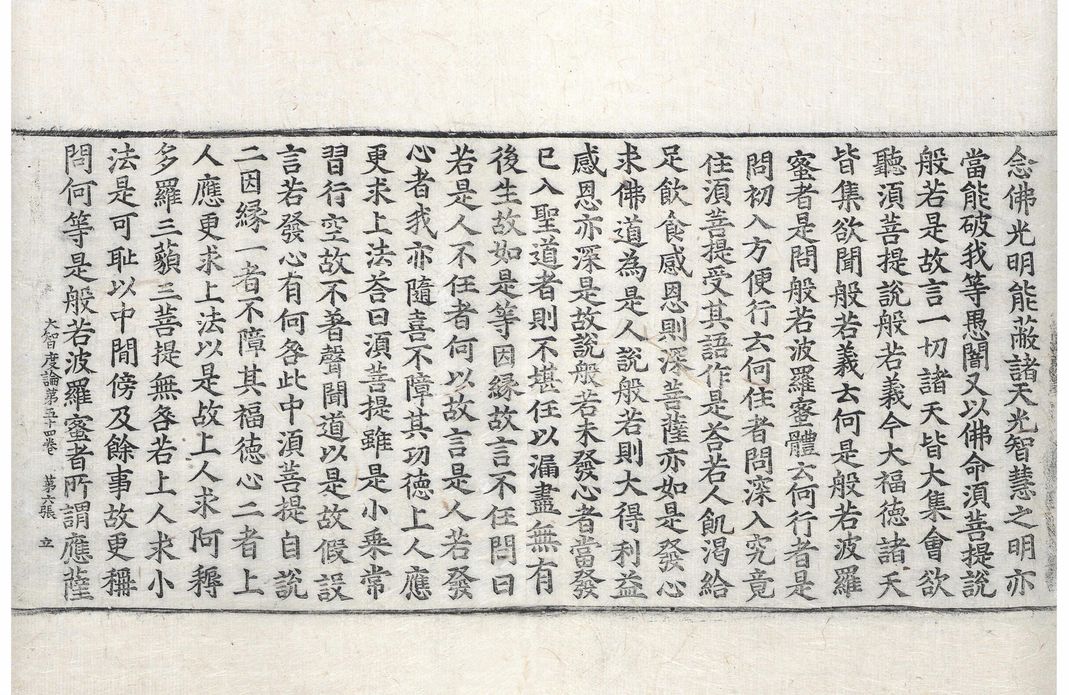 念佛光明能蔽諸天光智慧之明亦
當能破我等愚闇又以佛命湏菩提說
般若是故言一切諸天皆大集會欲
聽湏菩提說般若義今大福德諸天
皆集欲聞般若義云何是般若波羅
蜜者是問般若波羅蜜體云何行者是
問初入方便行云何住者問深入究竟
住湏菩提受其語作是荅若人飢渴給
足飮食感恩則深菩薩亦如是發心
求佛道為是人說般若則大得利益
感恩亦深是故說般若未發心者當發
已入聖道者則不堪任以漏盡無有
後生故如是等因緣故言不任問曰
若是人不任者何以故言是人若發
心者我亦隨喜不障其功德上人應
更求上法荅曰湏菩提雖是小乗常
習行空故不著聲聞道以是故假設
言若發心有何咎此中湏菩提自說
二因緣一者不障其福德心二者上
人應更求上法以是故上人求阿耨
多羅三藐三菩提無咎若上人求小
法是可耻以中間傍及餘事故更稱
問何等是般若波羅蜜者所謂應薩
大智度論第五十四卷 第六張 立